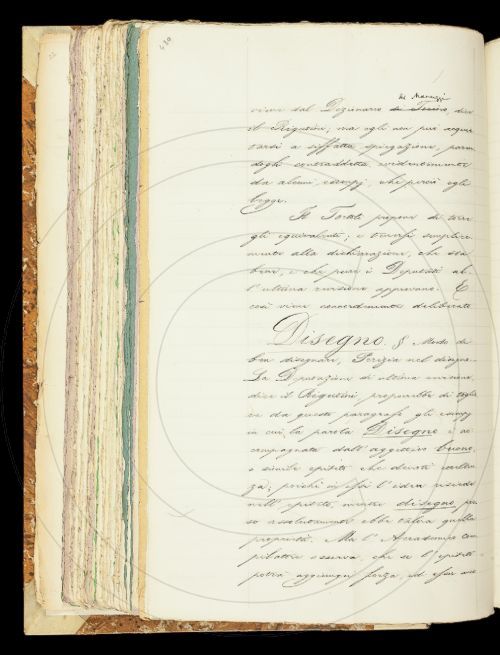 480
di Manuzzi
viene dal Dizionario di Torino, dice
il Rigutini, ma egli non può acque
tarsi a siffatta spiegazione, paren
dogli contraddetta evidentemente
da alcuni esempj, che perciò egli
legge.
Il Tortoli propone di torre
gli equivalenti, e tenersi semplice
mente alla dichiarazione, che sta
bene, e che pure i Deputati al
l'ultima revisione approvano. E
così viene concordemente deliberato
Disegno. § Modo di
ben disegnare, Perizia nel disegno.
La Deputazione di ultima revisione,
dice il Rigutini, proporrebbe di toglie
re da questo paragrafo gli esempj
in cui la parola Disegno è ac
compagnata dall'aggettivo buono,
o simile epiteto che denoti eccellen
za; poichè in essi l'idea risiede
nell'epiteto, mentre disegno, pre
so assolutamente ebbe talora quella
proprietà. Ma l'Accademico com
pilatore osserva, che se l'epiteto
potrà aggiunger forza, ed esser